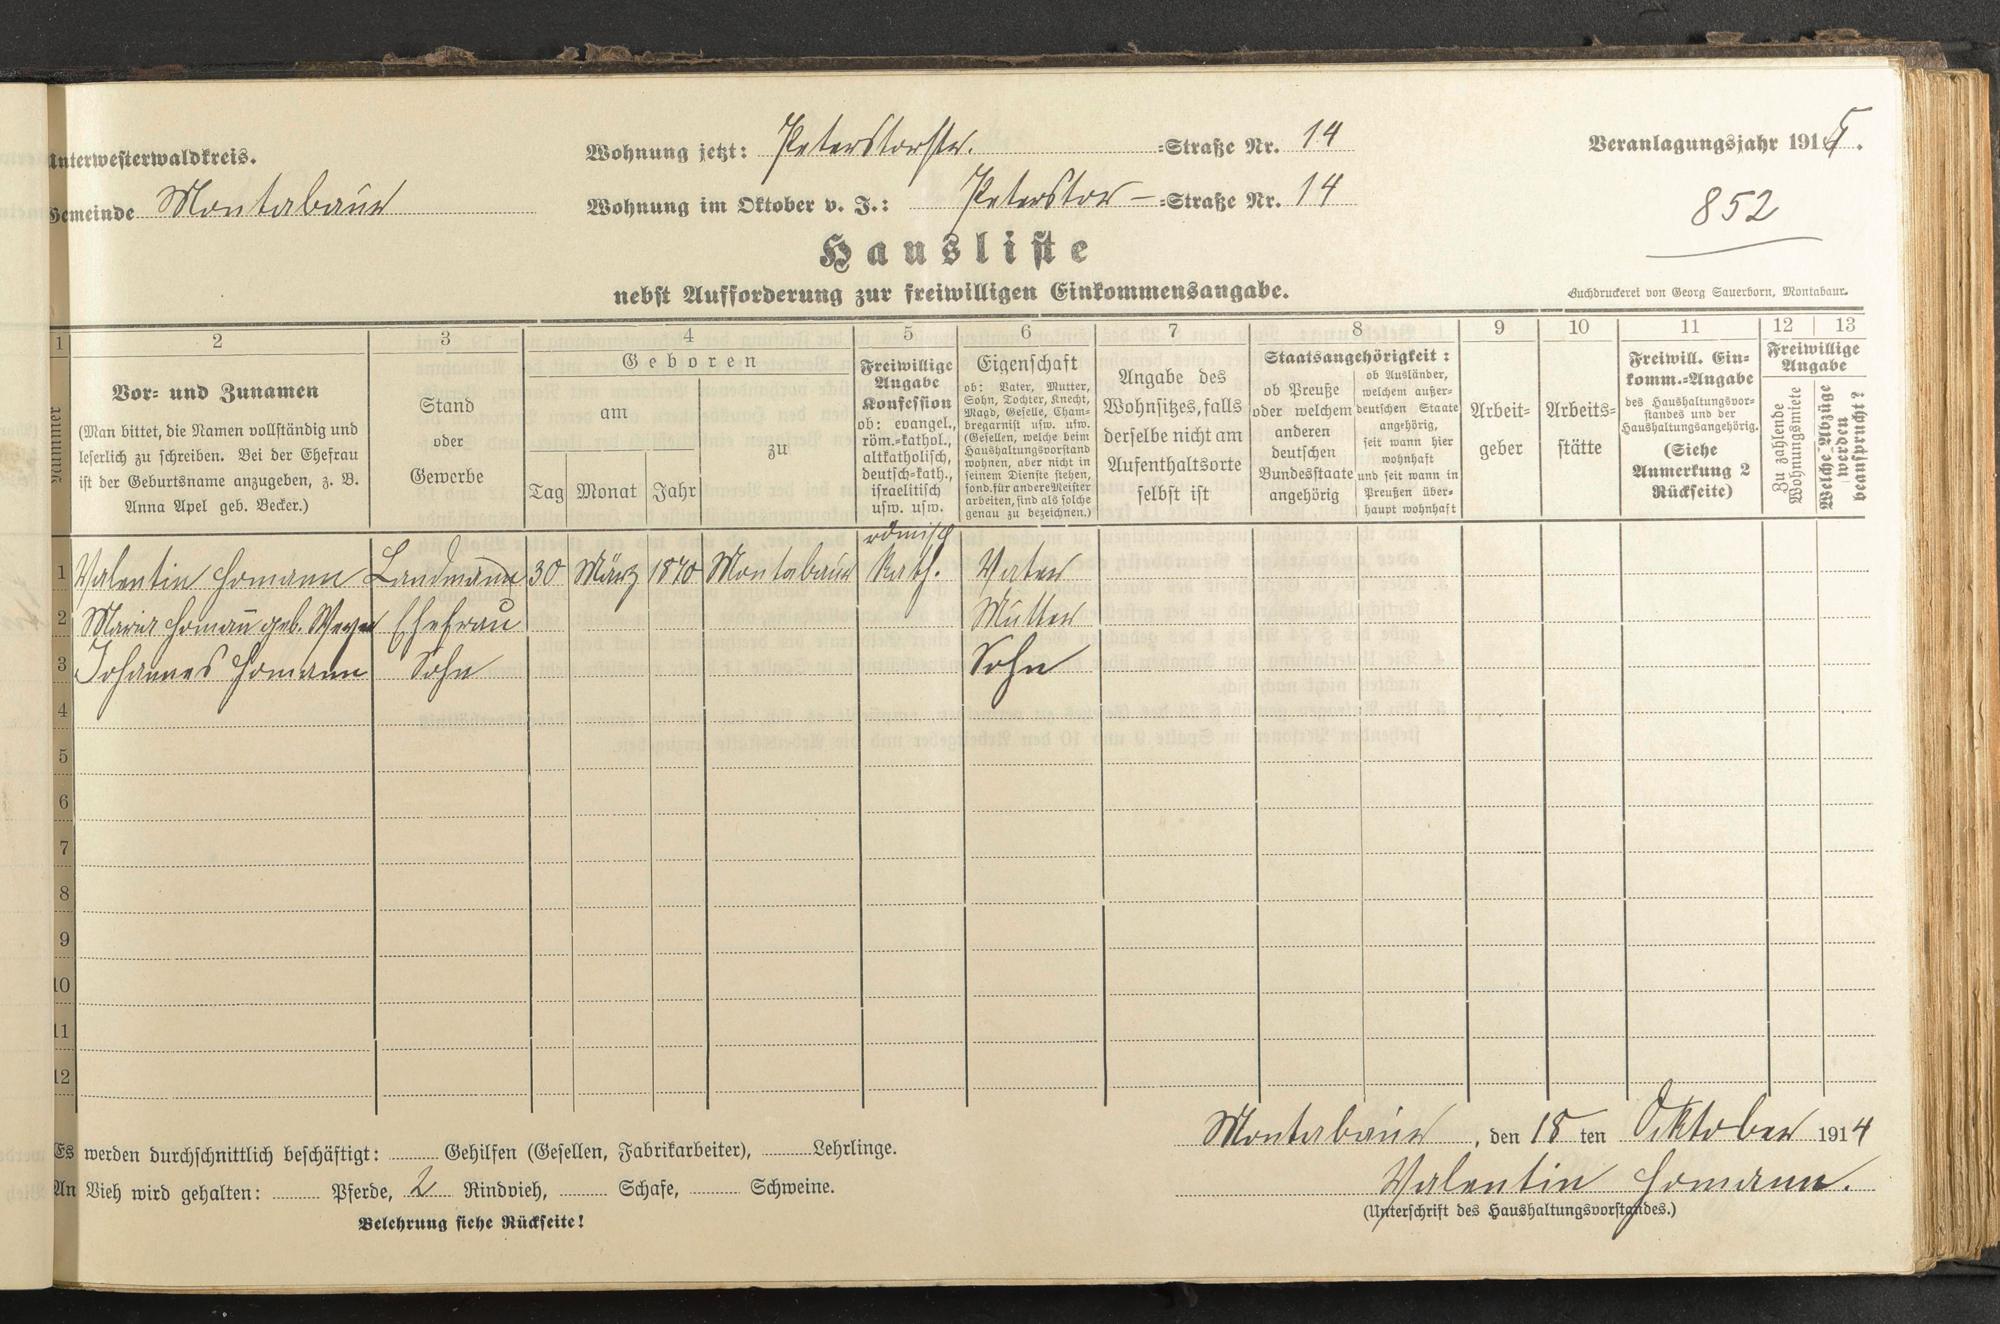 Unterwesterwaldkreis.
Gemeinde Montabaur
Wohnung jetzt: Peterstorstr. =Straße Nr. 14
Wohnung im Oktober v. J.: Peterstor- =Straße Nr. 14
Veranlagungsjahr 1915.
852
Hausliste
nebst Aufforderung zur freiwilligen Einkommensangabe.
Buchdruckerei von Georg Sauerborn, Montabaur.
1 2 3 4 5 6 7 8 9 10 11 12 13
Nummer
Vor- und Zunamen
(Man bittet, die Namen vollständig und
leserlich zu schreiben. Bei der Ehefrau
ist der Geburtsname anzugeben, z. B.
Anna Apel geb. Becker.)
Stand
oder
Gewerbe
Geboren
am
Tag Monat Jahr
zu
Freiwillige
Angabe
Konfession
ob: evangel.,
röm.-kathol.,
altkatholisch,
deutsch-kath.,
israelitisch
usw. usw.
Eigenschaft
ob: Vater, Mutter,
Sohn, Tochter, Knecht,
Magd, Geselle, Cham-
bregarnist usw. usw.
(Gesellen, welche beim
Haushaltungsvorstand
wohnen, aber nicht in
seinem Dienste stehen,
sond. für andere Meister
arbeiten, sind als solche
genau zu bezeichnen.)
Angabe des
Wohnsitzes, falls
derselbe nicht am
Aufenthaltsorte
selbst ist
Staatsangehörigkeit:
ob Preuße
oder welchem
anderen
deutschen
Bundesstaate
angehörig
ob Ausländer,
welchem außer-
deutschen Staate
angehörig,
seit wann hier
wohnhaft
und seit wann in
Preußen über-
haupt wohnhaft
Arbeit-
geber
Arbeits-
stätte
Freiwill. Ein-
komm.-Angabe
des Haushaltungsvor-
standes und der
Haushaltungsangehörig.
(Siehe
Anmerkung 2
Rückseite)
Freiwillige
Angabe
Zu zahlende
Wohnungsmiete
Welche Abzüge
werden
gewünscht?
1 Valentin Homann Landmann 30 März 1870 Montabaur römisch Kath. Vater
2 Maria Homann geb. Meyer Ehefrau Mutter
3 Johannes Homann Sohn Sohn
4
5
6
7
8
9
10
11
12
Es werden durchschnittlich beschäftigt: Gehilfen (Gesellen, Fabrikarbeiter), Lehrlinge.
An Vieh wird gehalten: Pferde, 2 Rindvieh, Schafe, Schweine.
Belehrung siehe Rückseite!
Montabaur, den 18 ten Oktober 1914
Valentin Homann.
(Unterschrift des Haushaltungsvorstandes.)